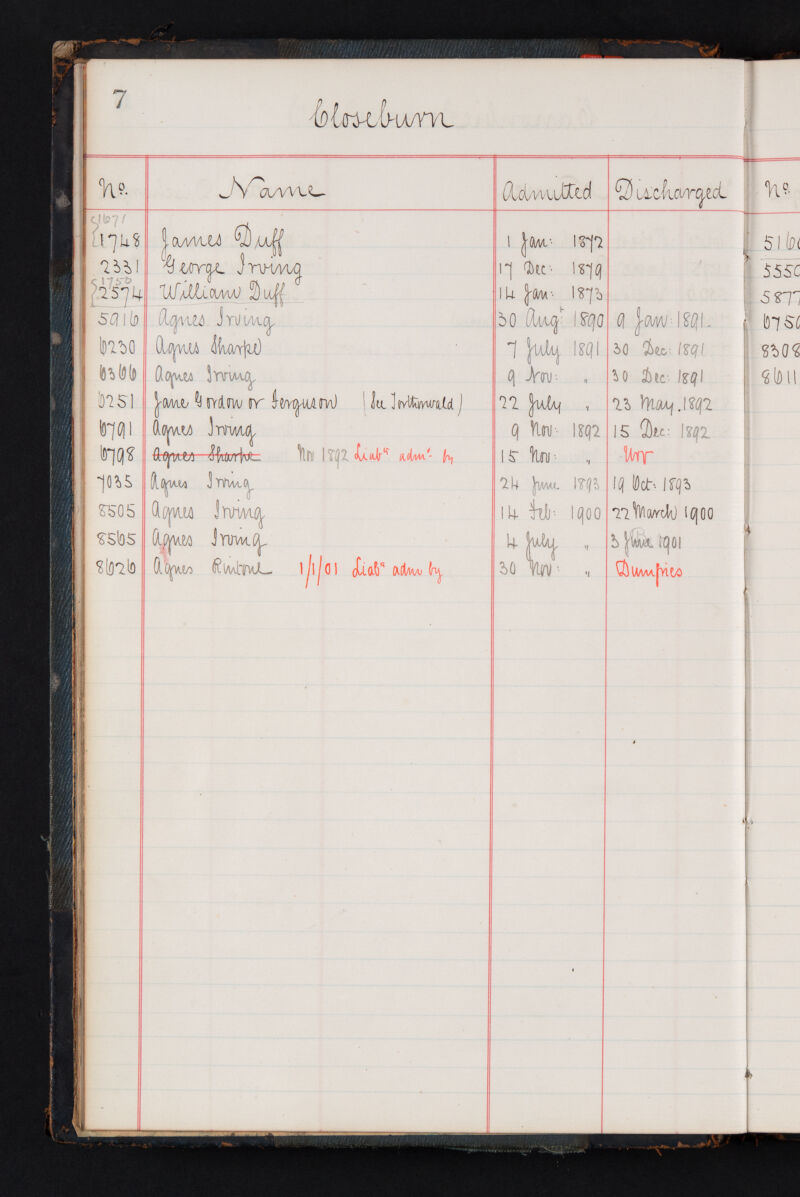 7
Closeburn
No. Name Admitted Discharged No.
1671
1748 James Duff 1 Jan: 1872
2331 George Irving 17 Dec: 1879
1756
2574 William Duff 14 Jan: 1873
5916 Agnes Irving 30 Aug: 1890 9 Jan: 1891.
6230 Agnes Sharpe 7 July 1891 30 Dec: 1891
6366 Agnes Irving 9 Nov: „ 30 Dec: 1891
6251 Jane Gordon or Ferguson (See Torthorwald) 22 July „ 23 May. 1892
6791 Agnes Irving 9 Nov: 1892 15 Dec: 1892
6798 Agnes Sharpe Nov 1892 Liaby admd by 15 Nov: „ Urr
7035 Agnes Irving 24 June 1893 19 Oct: 1893
8505 Agnes Irving 14 Feb: 1900 22 March 1900
8565 Agnes Irving 4 July „ 3 June 1901
8626 Agnes Rintoul 1/1/01 Liaby adm by 30 Nov: „ Dumfries
516
555
587
675
8308
8611